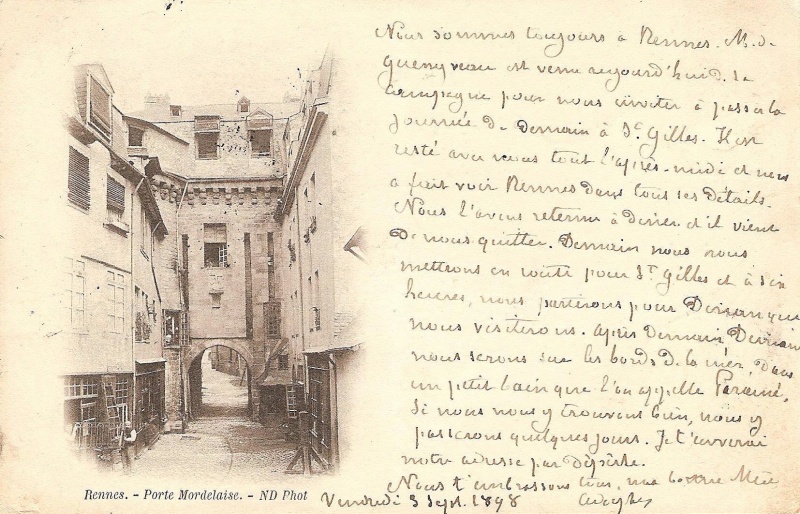 Nous sommes toujours à Rennes. M. de
Quengyveau est venu aujourd'hui d. sa
campagne pour nous inviter à passer la
journée de demain à St Gilles. Il est
resté avec nous tout l'après-midi et nous
a fait voir Rennes dans tous ses détails.
Nous l'avons retenu à dîner et il vient
de nous quitter. Demain nous nous
mettrons en route pour St Gilles et à six
heures, nous partirons pour Dinan que
nous visiterons. Après Demain Dimanche
nous serons sur les bords de la mer, dans
un petit bain que l'on appelle Paramé,
Si nous nous y trouvons bien, nous y
passerons quelques jours. Je t'enverrai
notre adresse par dépêche.
Nous t'embrassons tous, ma bonne
Vendredi Sept. 1898
Rennes. - Porte Mordelaise. - ND Phot